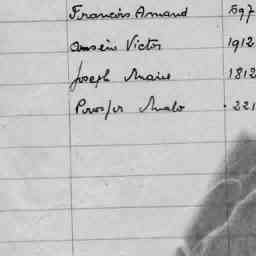 François Amand 597
Victor 1912
Joseph Marie 1812
Prosper Malo 221